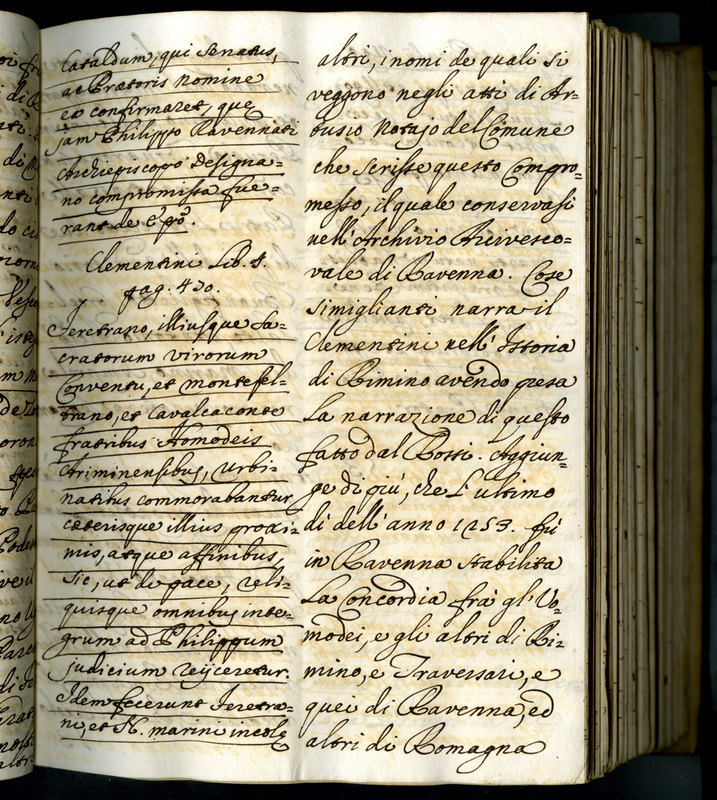 Cataldum, qui Senatus,
ac Prætoris nomine
ea confirmaret, quæ
jam Philippo Ravennati
Archiepiscopo designa=
no compromissa fue=
rant de Epõ.
Clementini Lib. 4.
pag. 430.
Feretrano, illiusque sa=
cratorum virorum
Conventu, et montefel=
trano, et Cavalcaconte
fratribus Homodeis
Ariminensibus, Urbi=
natibus commorabantur
cæterisque illius proxi=
mis, atque affinibus,
sic, ut de pace, reli=
quisque omnibus inte=
grum ad Philippum
judicium reijceretur.
Idem fecerunt Feretra=
ni, et S. marini incolę
altri, i nomi de quali si
veggono negli atti di Ar=
tusio Notajo del Comune
che scrisse questo Compro=
messo, il quale conservasi
nell' Archivio Arcivesco=
vale di Ravenna. Cose
simiglianti narra il
Clementini nell' Istoria
di Rimino avendo presa
La narrazione di questo
fatto dal Rossi. Aggiun=
ge di più, che L'ultimo
di dell' anno 1253. fù
in Ravenna stabilita
La Concordia frà gl' Uo=
modei, e gli altri di Ri=
mino, e Traversari, e
quei di Ravenna, ed
altri di Romagna